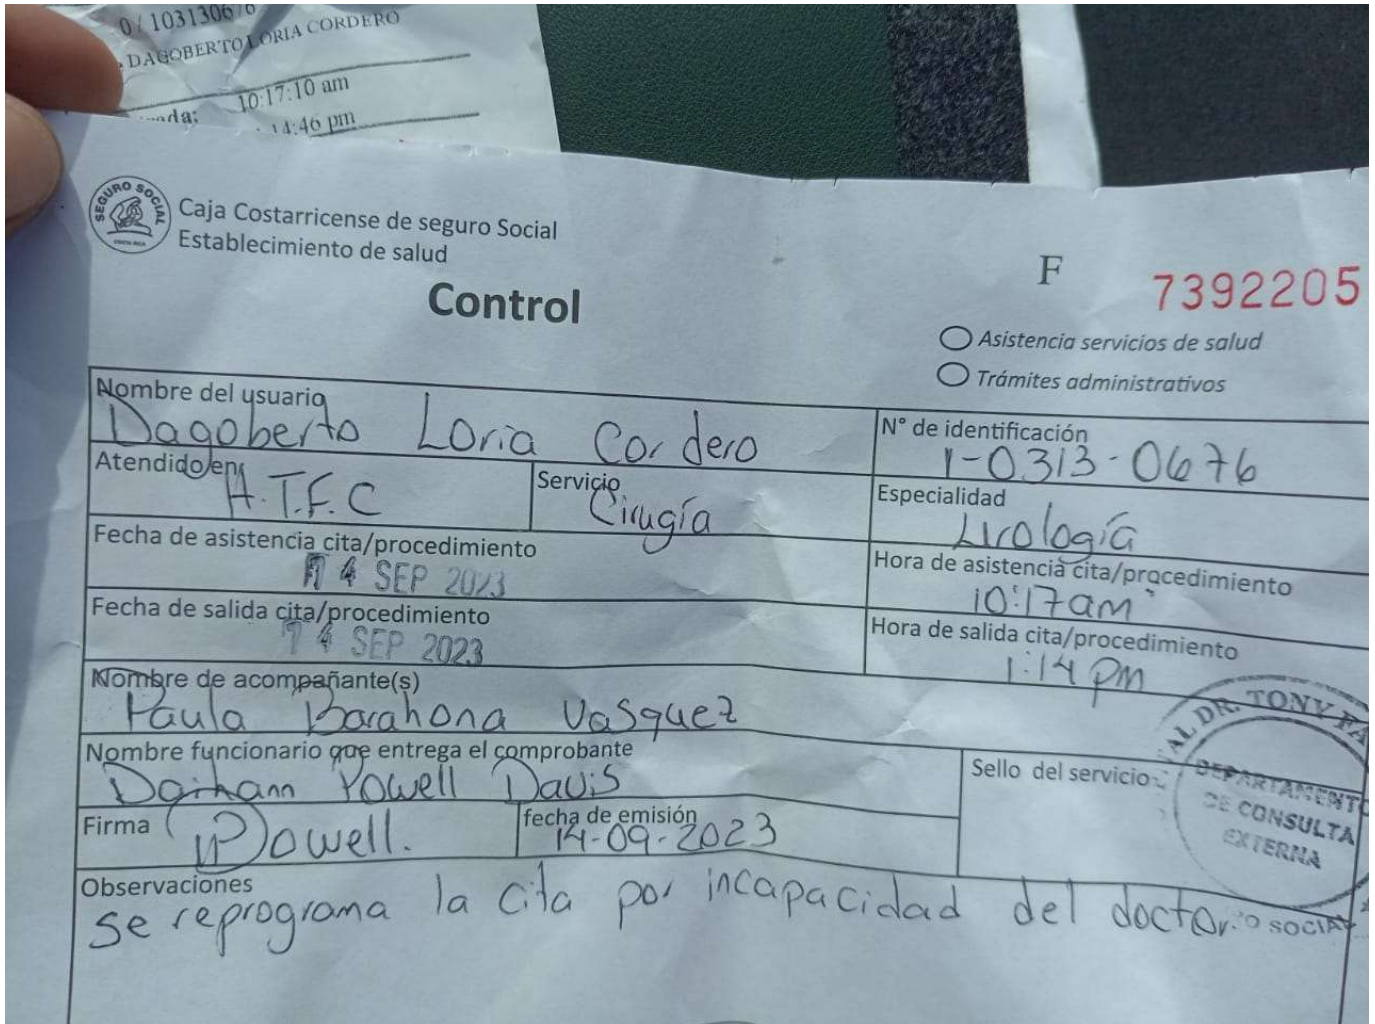 0 / 10313067 6
DAGOBERTO LORIA CORDERO
10:17:10 am
14:46 pm
SEGURO SOCIAL
COSTA RICA
Caja Costarricense de seguro Social
Establecimiento de salud
Control
F 7392205
Asistencia servicios de salud
Trámites administrativos
Nombre del usuario
Dagoberto Loria Cordero
N° de identificación
1-0313-0676
Atendido en
H.T.F.C
Servicio
Cirugía
Especialidad
Urología
Fecha de asistencia cita/procedimiento
14 SEP 2023
Hora de asistencia cita/procedimiento
10:17am
Fecha de salida cita/procedimiento
14 SEP 2023
Hora de salida cita/procedimiento
1:14 pm
Nombre de acompañante(s)
Paula Barahona Vasquez
Nombre funcionario que entrega el comprobante
Daihann Powell Davis
Sello del servicio
DR. TONY FA
DEPARTAMENTO
DE CONSULTA
EXTERNA
Firma
Powell.
fecha de emisión
14-09-2023
Observaciones
se reprograma la cita por incapacidad del doctor.
SOCIA